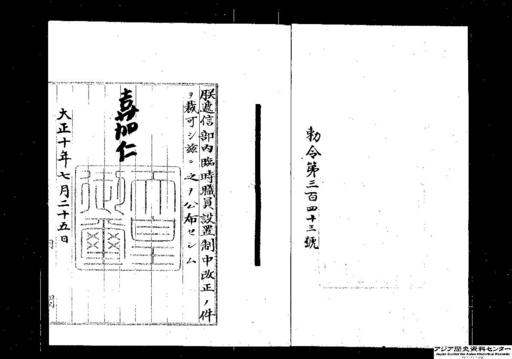 勅令第三百四十三號
朕遞信部内臨時職員設置制中改正ノ件
ヲ裁可シ茲ニ之ヲ公布セシム
嘉仁
天皇御璽
大正十年七月二十五日
アジア歴史資料センター
Japan Center for Asian Historical Records